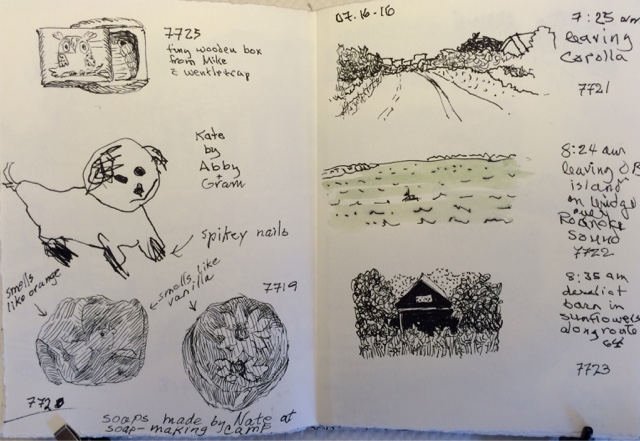 7725
tiny wooden box
from Mike
z wentletrap
Kate
by
Abby
+
Gram
spikey nails
smells
like orange
smells like
vanilla
7719
7720
soaps made by Nate at
soap-making camp
07.16.16
7:25 am
leaving
Corolla
7721
8:24 am
leaving OB
island
on bridge
over
Roanoke
Sound
7722
8:35 am
derelict
barn in
sunflowers
along route
64
7723